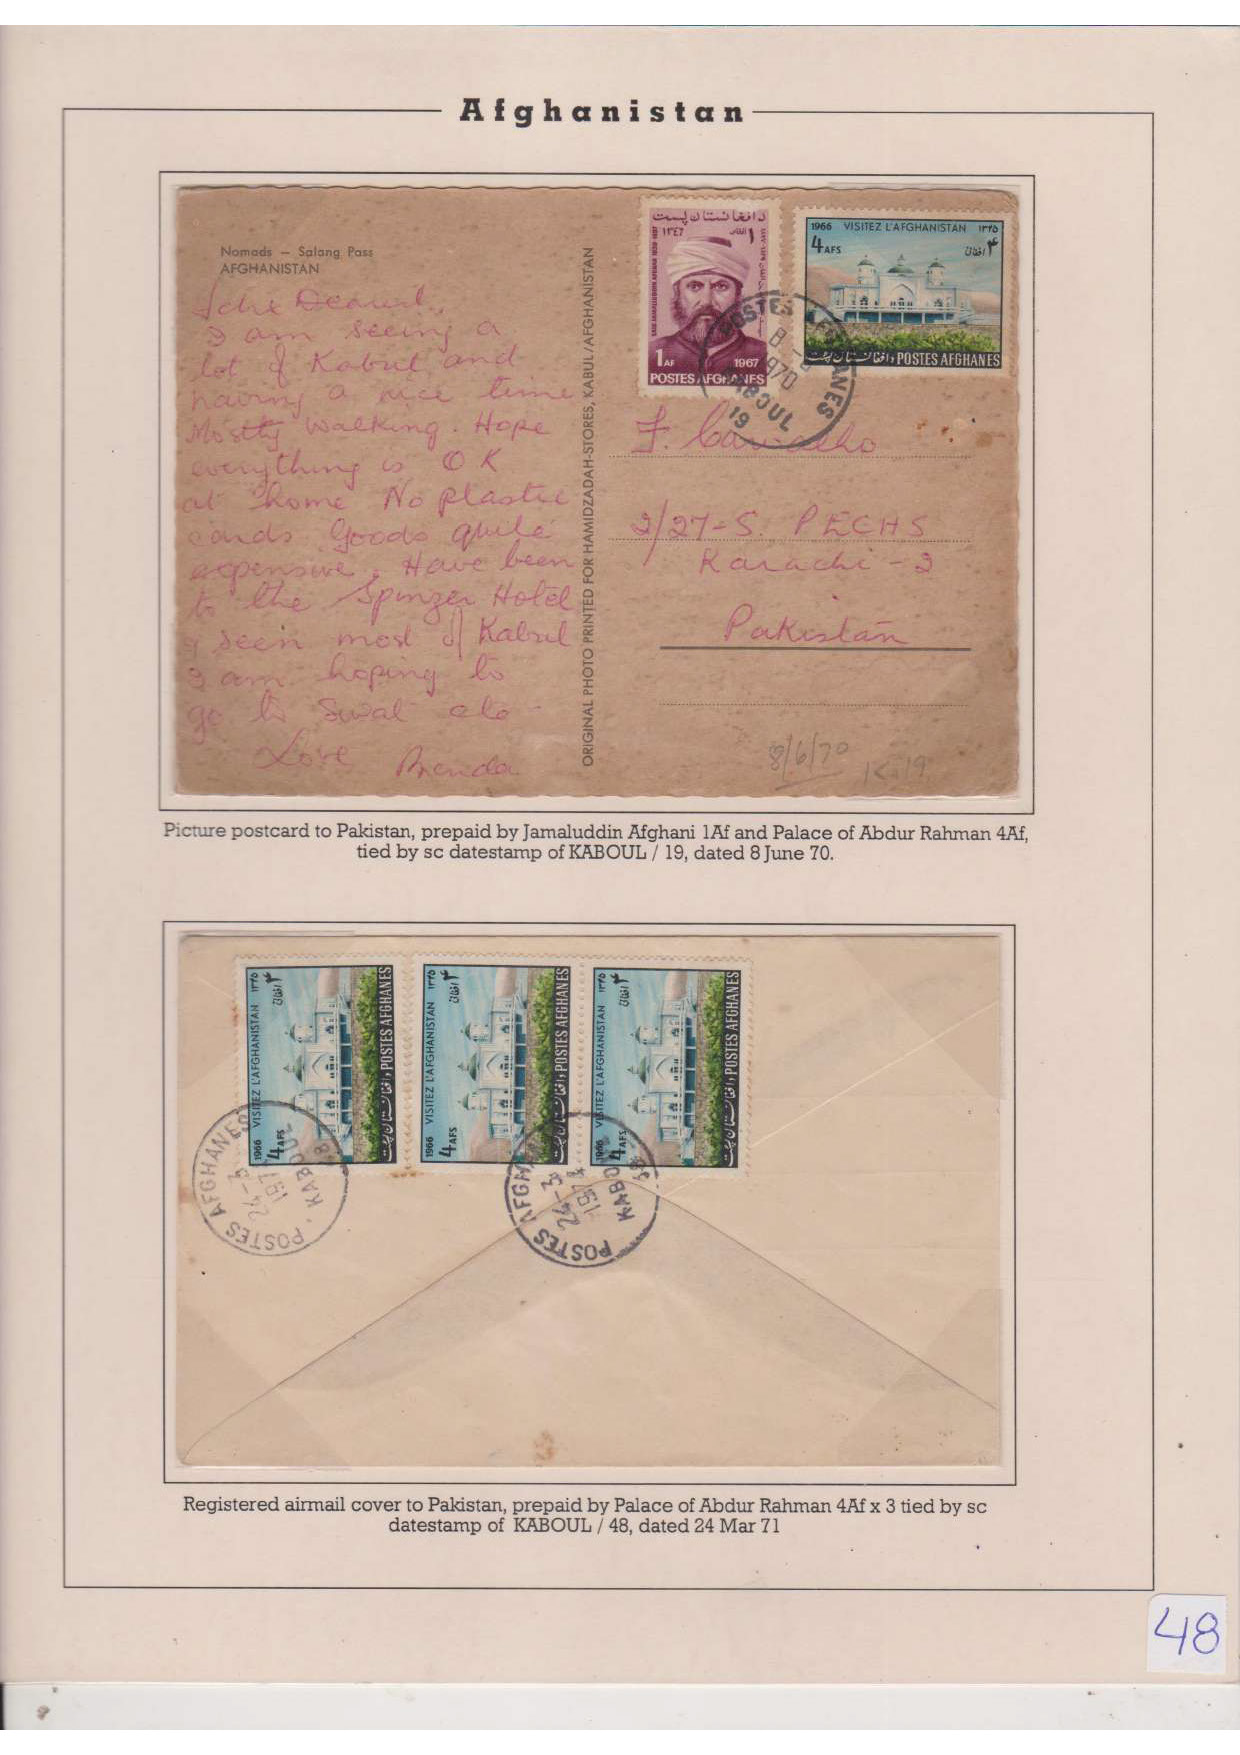 Afghanistan
Nomads – Salang Pass
AFGHANISTAN
I am seeing a
lot of Kabul and
having a nice time
Mostly walking. Hope
everything is OK
at home No plastic
cards. Goods quite
expensive. Have been
to the Spinzer Hotel
& seen most of Kabul
I am hoping to
go to Swat etc -
Love Brenda
ORIGINAL PHOTO PRINTED FOR HAMIDZADAH-STORES, KABUL/AFGHANISTAN
د افغانستان پست
۱۳٤۷ ۱
1 AF 1967
POSTES AFGHANES
1966 VISITEZ L'AFGHANISTAN ۱۳٤۵
4 AFS ۴ افغانی
د افغانستان پست POSTES AFGHANES
POSTES AFGHANES
8
1970
KABOUL
19
F. Carvalho
2/27-S. PECHS
Karachi - 2
Pakistan
8/6/70
K.19
Picture postcard to Pakistan, prepaid by Jamaluddin Afghani 1Af and Palace of Abdur Rahman 4Af,
tied by sc datestamp of KABOUL / 19, dated 8 June 70.
1966 VISITEZ L'AFGHANISTAN ۱۳٤۵
4 AFS ۴ افغانی
د افغانستان پست POSTES AFGHANES
1966 VISITEZ L'AFGHANISTAN ۱۳٤۵
4 AFS ۴ افغانی
د افغانستان پست POSTES AFGHANES
1966 VISITEZ L'AFGHANISTAN ۱۳٤۵
4 AFS ۴ افغانی
د افغانستان پست POSTES AFGHANES
POSTES AFGHANES
24-3
KABOUL
48
POSTES AFGHAN
24-3
KABO
Registered airmail cover to Pakistan, prepaid by Palace of Abdur Rahman 4Af x 3 tied by sc
datestamp of KABOUL / 48, dated 24 Mar 71
48